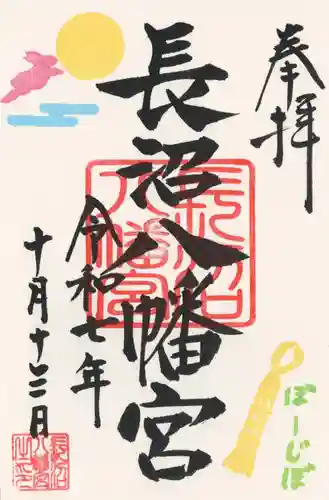 奉拝
長沼八幡宮
長沼
八幡宮
令和七年
十月十二日
長沼
八幡宮
之印
ぼーじぼ